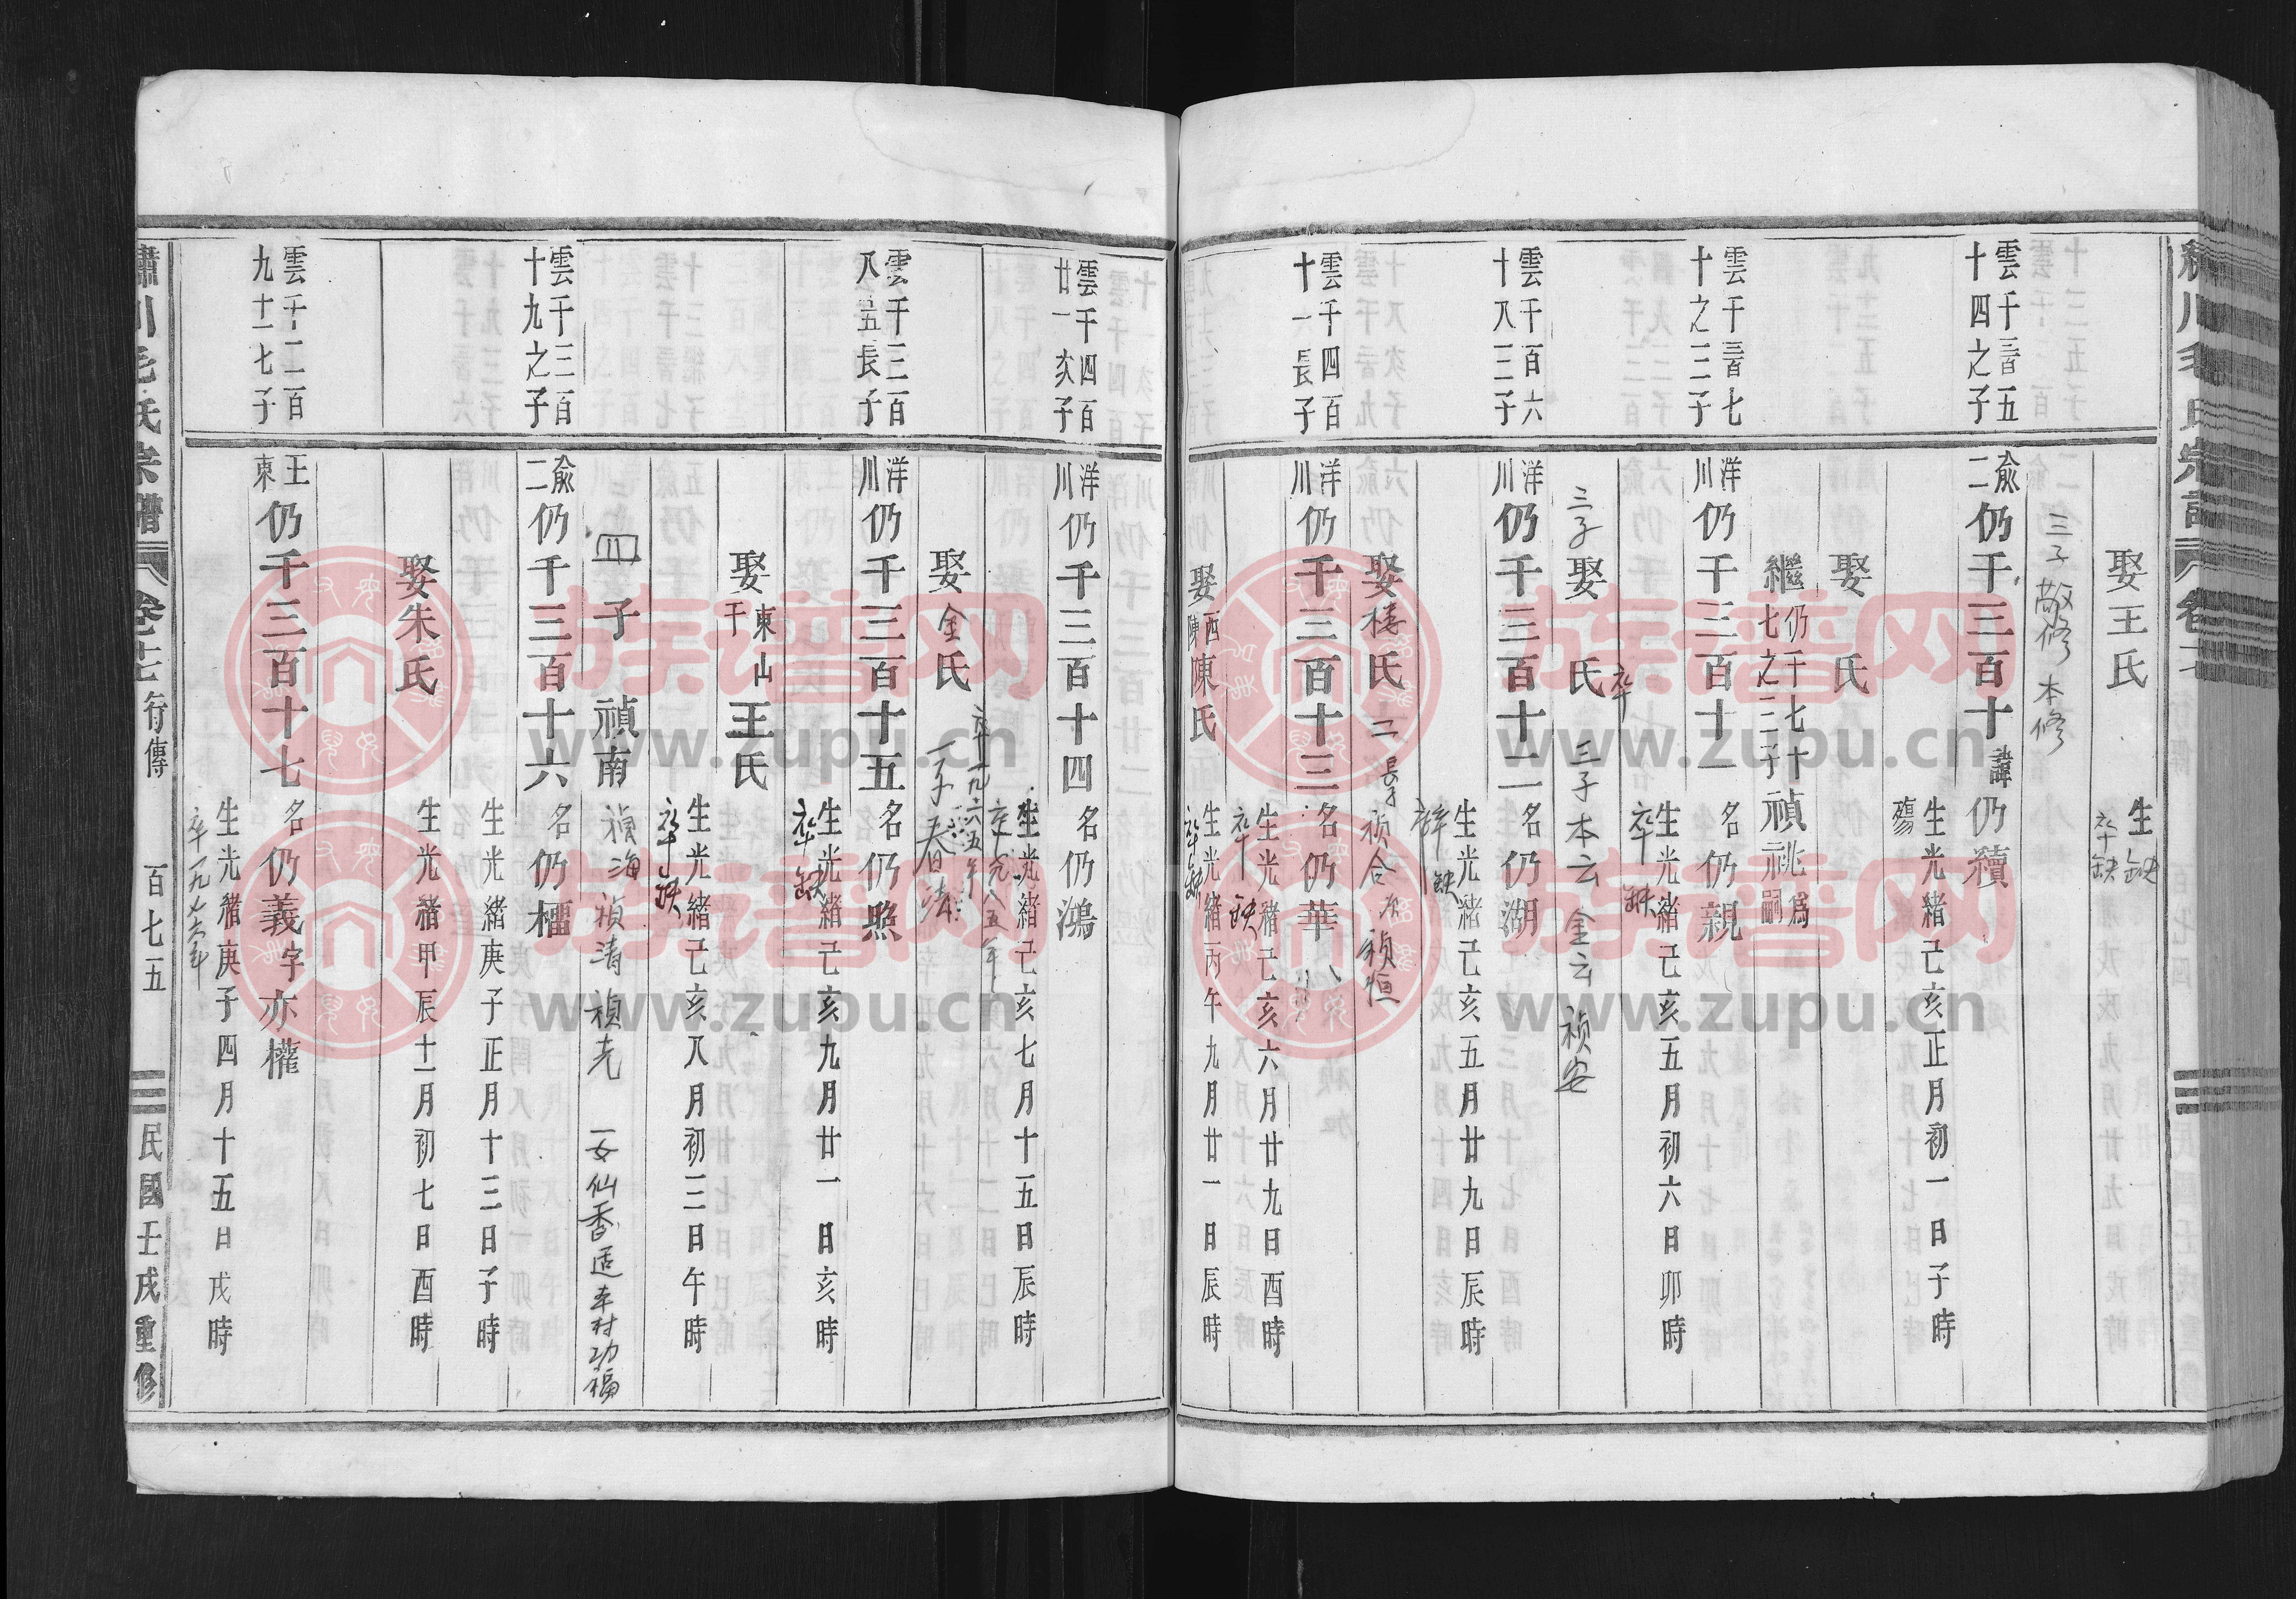 娶王氏
生缺
卒缺
三子 敬修 本修
雲千三百五
十四之子
俞
二
仍千三百十
諱仍續
生光緒己亥正月初一日子時
殤
娶 氏
繼仍千七十
七之二子
禎祧爲
嗣
雲千三百七
十之三子
洋
川
仍千三百十一
名仍親
生光緒己亥五月初六日卯時
卒缺
卒
三子
娶 氏
三子本云 金云 禎安
雲千百六
十八三子
洋
川
仍千三百十二
名仍湖
生光緒己亥五月廿九日辰時
缺
娶楼氏
二 長子 禎合 次 禎恒
雲千四百
十一長子
洋
川
仍千三百十三
名仍華
生光緒己亥六月廿九日酉時
卒缺
娶西
陳
陳氏
生光緒丙午九月廿一日辰時
卒缺
雲千四百
廿一次子
洋
川
仍千三百十四
名仍鴻
生光緒己亥七月十五日辰時
娶金氏
卒一九六五年
一子春法
雲千三百
八五長子
洋
川
仍千三百十五
名仍照
生光緒己亥九月廿一日亥時
卒缺
娶東山
干
王氏
生光緒己亥八月初三日午時
卒缺
四子 禎南 禎海 禎清 禎尧 一女仙香适車村功福
雲千三百
十九之子
俞
二
仍千三百十六
名仍櫺
生光緒庚子正月十三日子時
娶朱氏
生光緒甲辰十一月初七日酉時
雲千二百
九十一七子
王
東
仍千三百十七
名仍義字亦權
生光緒庚子四月十五日戌時
卒一九七六年
繡川毛氏宗譜 卷十七 行傳 百七五 民國壬戌重修
族谱网
www.zupu.cn
族谱网
www.zupu.cn
族谱网
www.zupu.cn
族谱网
www.zupu.cn